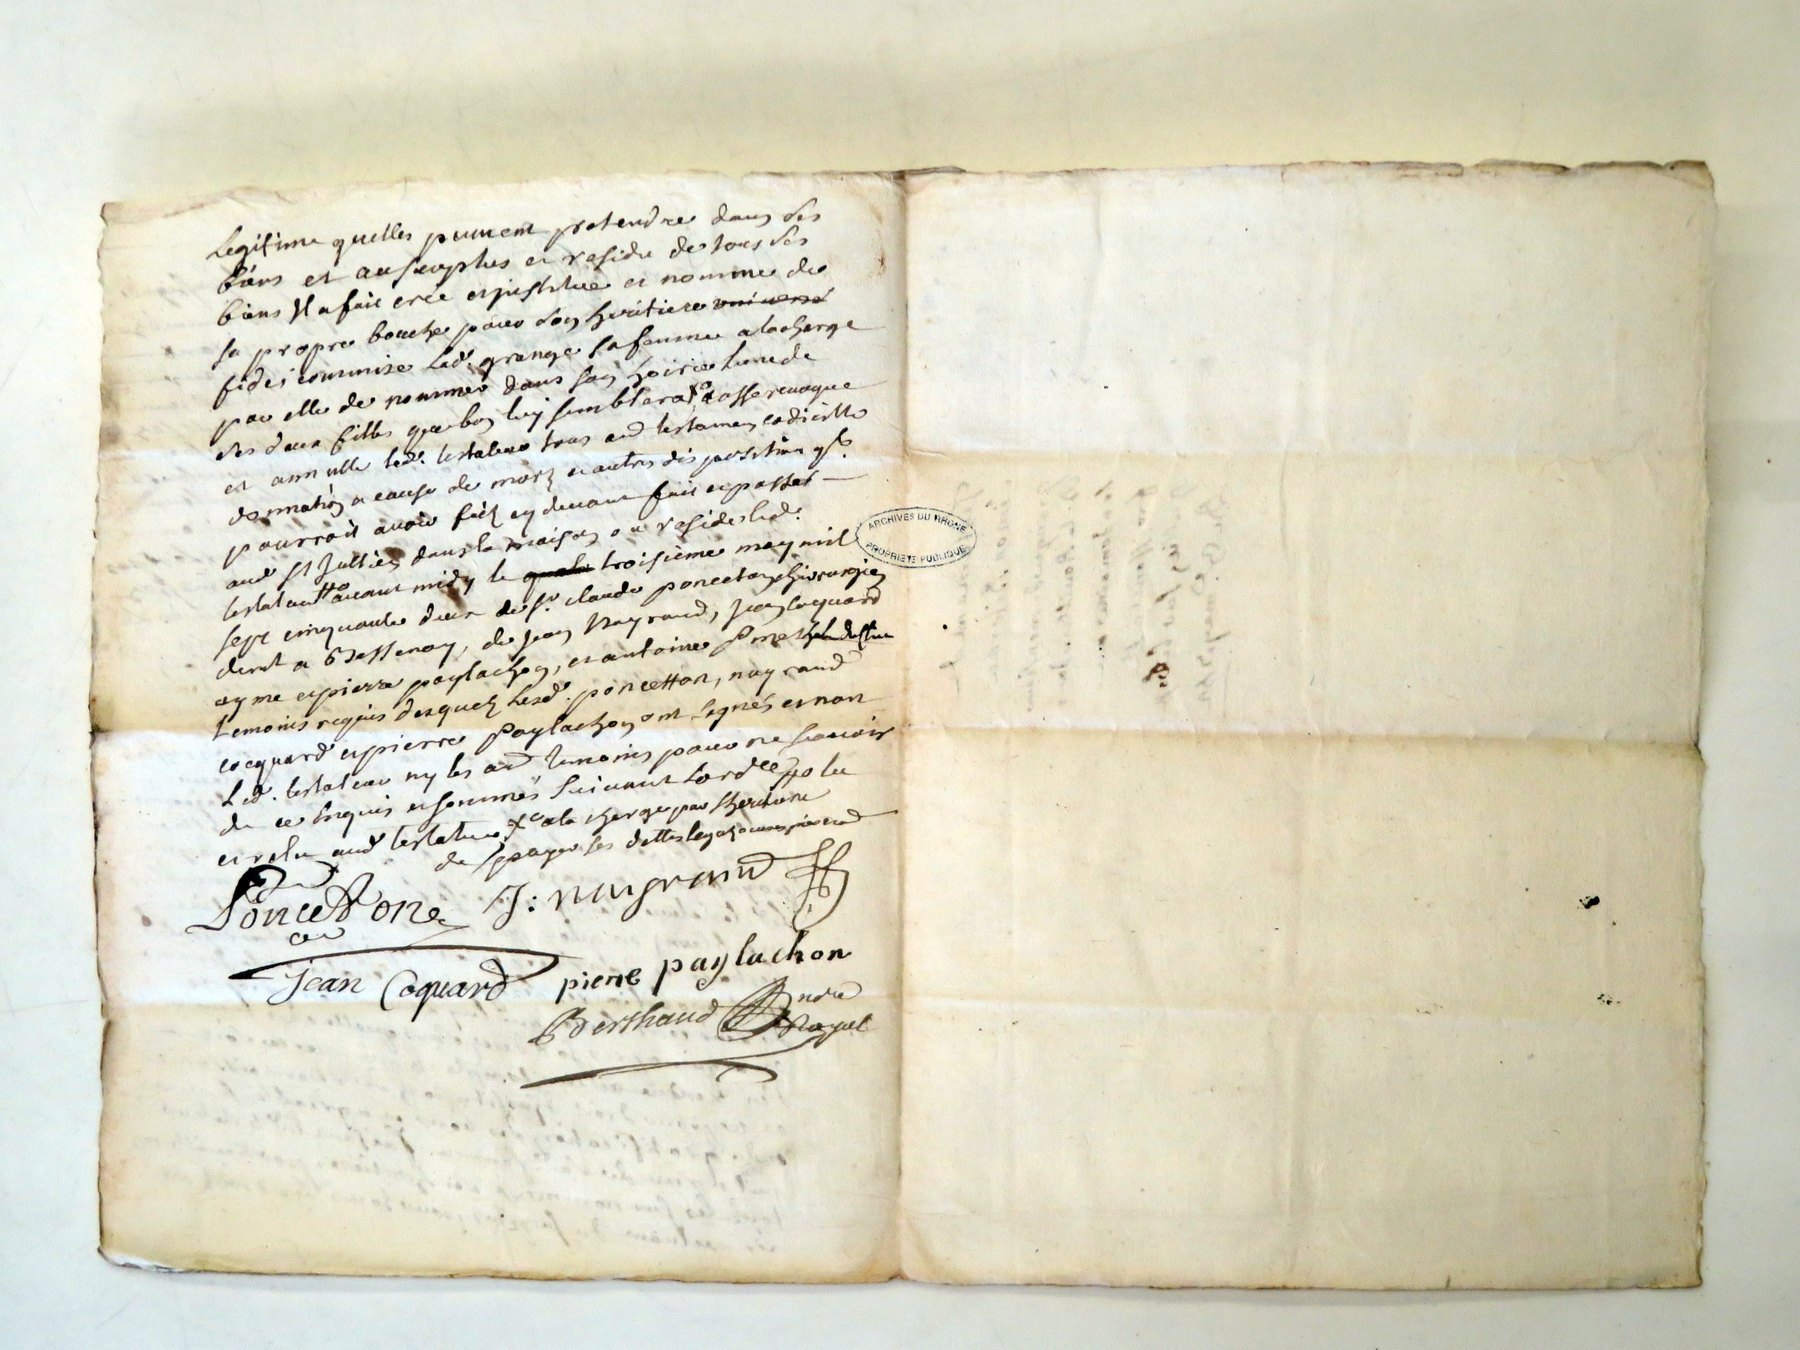 Legitime quelles puuent pretendre dans ses
biens et au surplus et residu de tous ses
biens Il a fait créé et institué et nommé de
sa propre bouche pour son heritiere universe
fideicommise lad. grange sa femme a la charge
par elle de nommer dans son hoirie lune de
ses deux filles que bon luy semblera casse revoque
et annulle led. testateur tous aud testamen codicille
donnation a cause de mort et autres disposition
pourroit avoir fait cy devant fait et passé
aud St Jullien dans la maison ou reside led.
testateur avant midy le troisieme may mil
sept cinquante deux de Sr. claude poncetton chirurgien
demt a Bessenay, de Jean Nayrand, Jean Coquard
ayme et pierre paylachon, et antoine
temoins requis desquels lesd. poncetton, nayrand
cocquard et pierre Paylachon ont signés et non
Led. testateur ny les aud temoins pour ne scavoir
de ce enquis et sommés suivant lordce lu
et relu aud testateur a la charge par lheritiere
de payer ses dettes legaz
Poncetton J: nayrand
Jean Coquard pierre paylachon
Berthaud
ARCHIVES DU RHONE
PROPRIETE PUBLIQUE